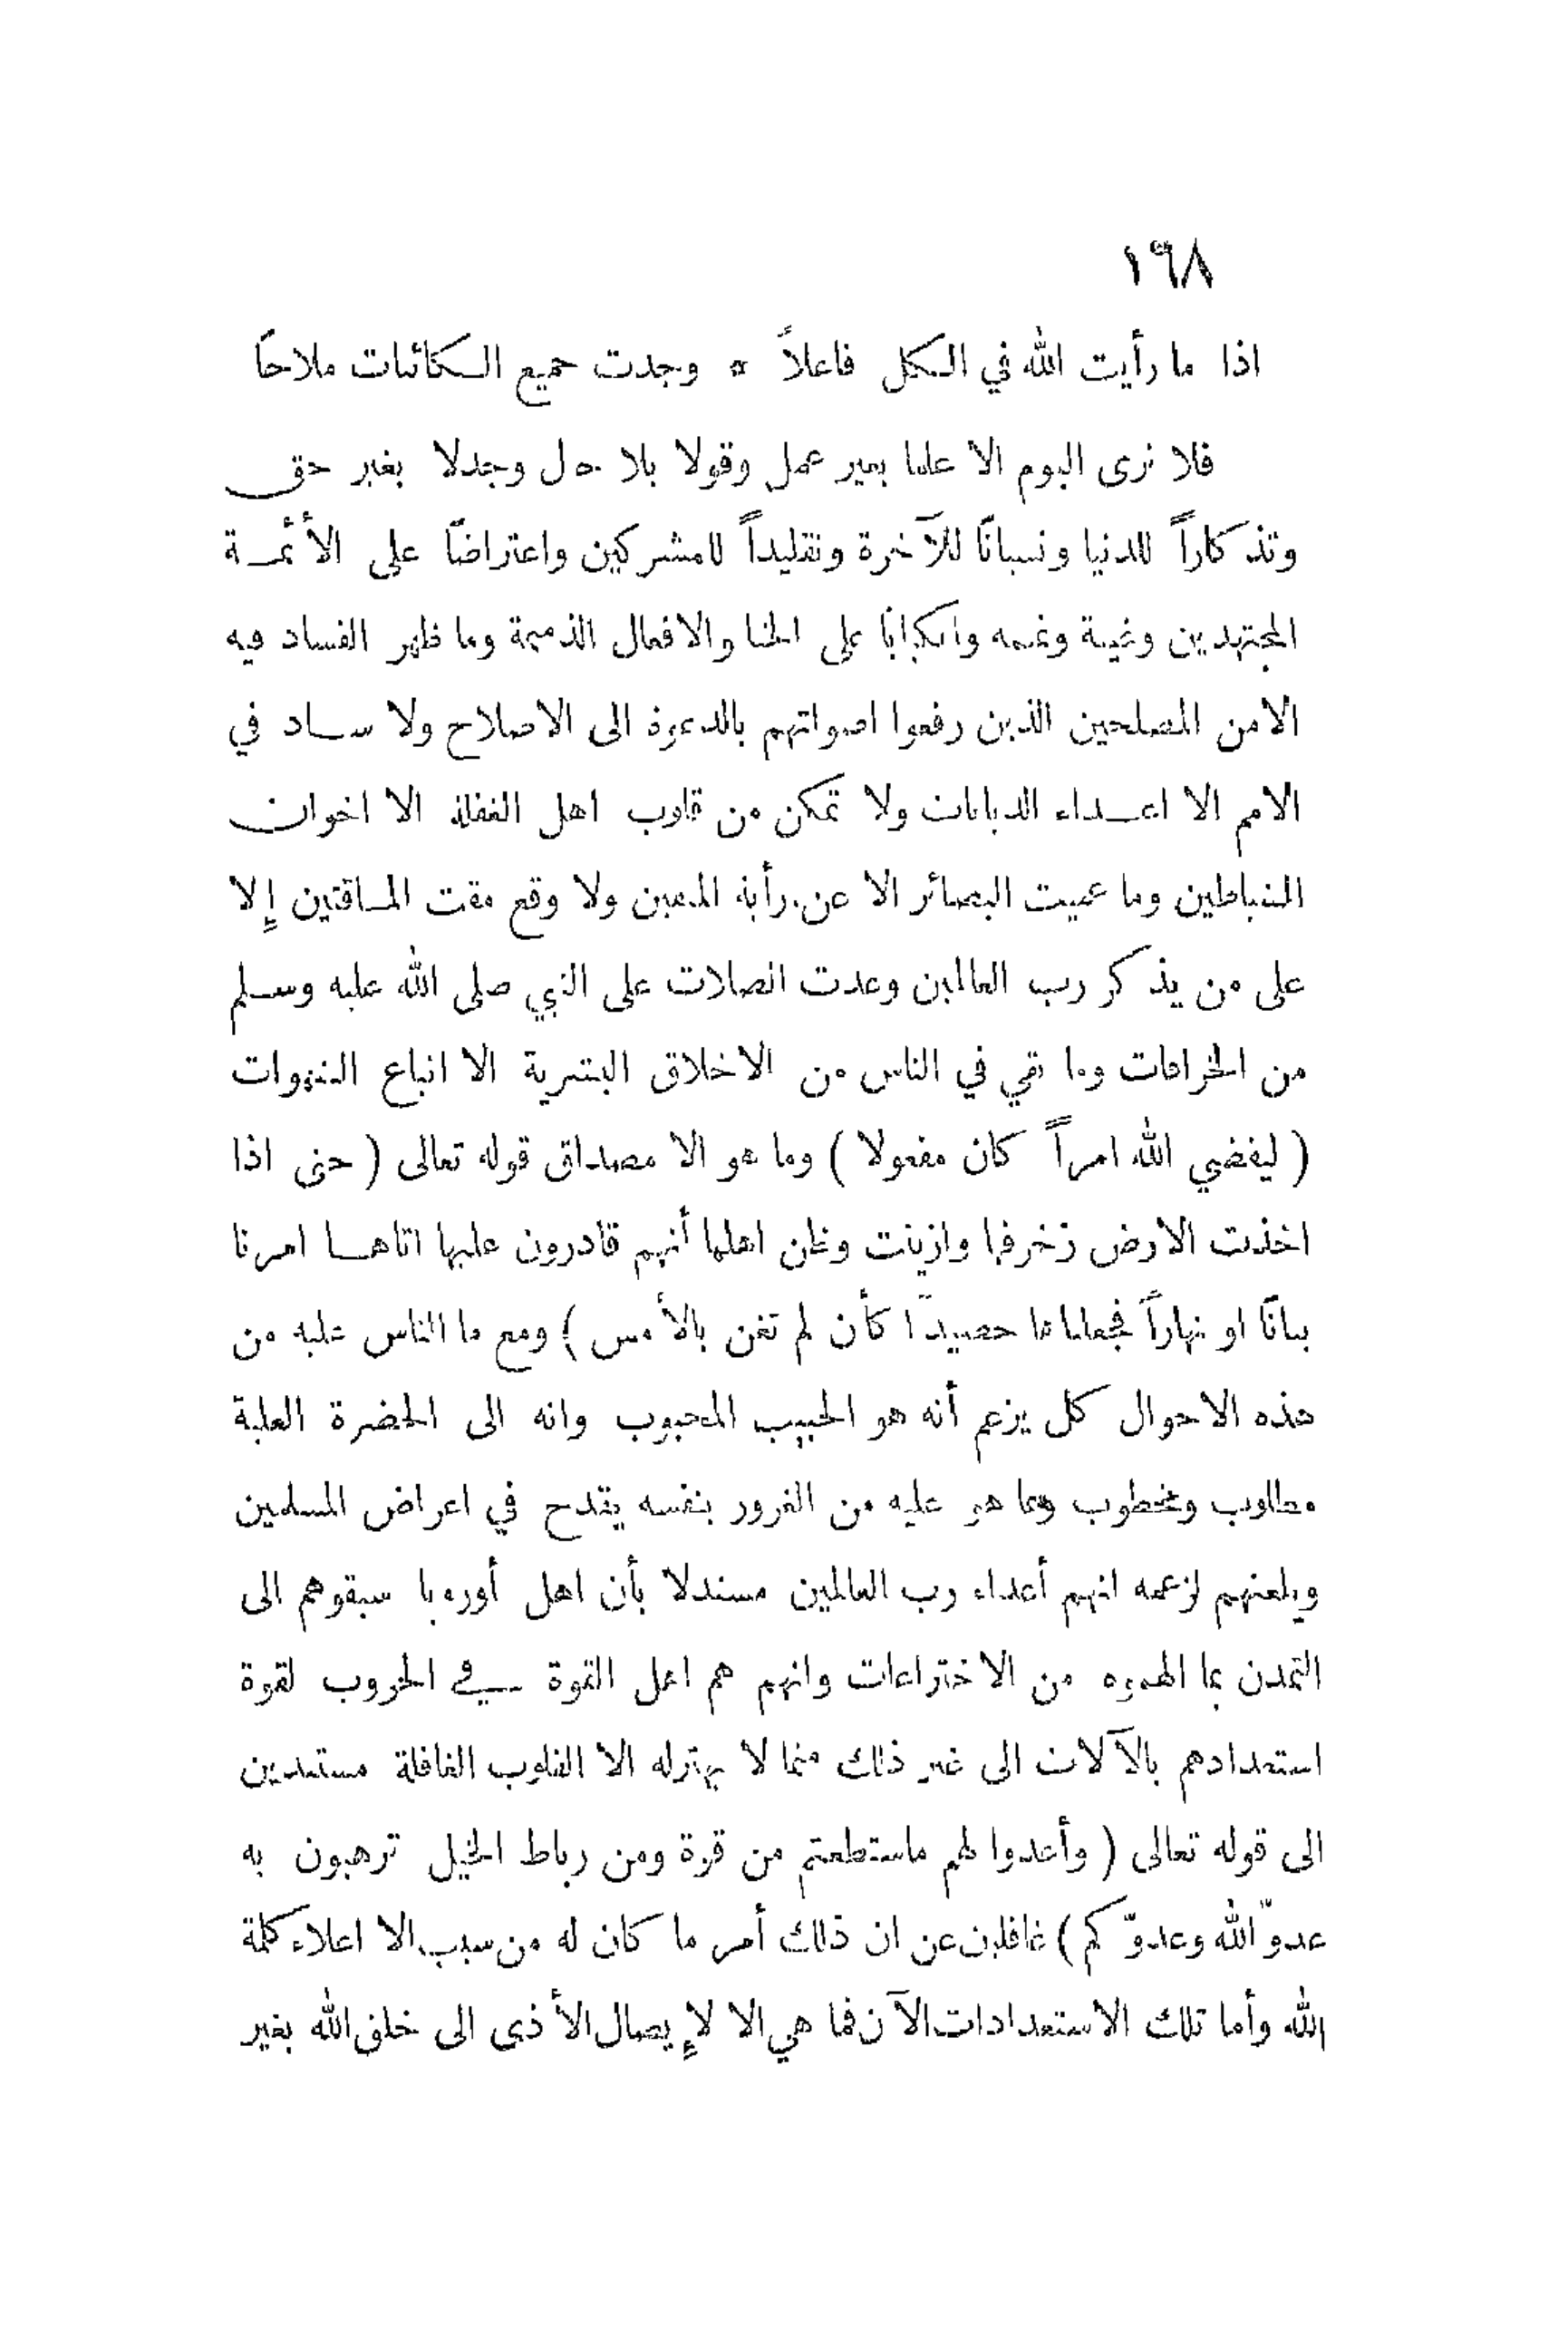 ١٩٨
اذا ما رأيت الله في الكل فاعلاً * وجدت جميع الكائنات ملاحاً
فلا نرى اليوم الا علما بغير عمل وقولا بلا وجدلا بغير حق
وتذكاراً للدنيا ونسيانًا للآخرة وتقليداً للمشركين واعتراضًا على الأئمة
المجتهدين وغيبة ونميمه وانكبابًا على الخنا والافعال الذميمة وما ظهر الفساد فيه
الامن المصلحين الذين رفعوا اصواتهم بالدعوة الى الاصلاح ولا ساد في
الامم الا اعداء الديانات ولا تمكن من قلوب اهل الغفلة الا اخوان
الشياطين وما عميت البصائر الا عن رأية المعين ولا وقع مقت الماقتين إلا
على من يذكر رب العالمين وعدت الصلات على النبي صلى الله عليه وسلم
من الخرافات وما بقي في الناس من الاخلاق البشرية الا اتباع الشهوات
( ليقضي الله امراً كان مفعولا ) وما هو الا مصداق قوله تعالى ( حتى اذا
اخذت الارض زخرفها وازينت وظن اهلها أنهم قادرون عليها اتاها امرنا
بياتًا او نهاراً فجعلناها حصيدًا كأن لم تغن بالأمس ) ومع ما الناس عليه من
هذه الاحوال كل يزعم أنه هو الحبيب المحبوب وانه الى الحضرة العلية
مطلوب ومخطوب ومما هو عليه من الغرور بنفسه يقدح في اعراض المسلمين
ويلعنهم لزعمه انهم أعداء رب العالمين مستدلا بأن اهل أوروبا سبقوهم الى
التمدن بما الهموه من الاختراعات وانهم هم اهل القوة في الحروب لقوة
استعدادهم بالآلات الى غير ذلك مما لا يهتزله الا القلوب الغافلة مستندين
الى قوله تعالى ( وأعدوا لهم ماستطعتم من قوة ومن رباط الخيل ترهبون به
عدوّ الله وعدوّكم ) غافلين عن ان ذلك أمر ما كان له من سبب الا اعلاء كلمة
الله وأما تلك الاستعدادات الآن فما هي الا لإيصال الأذى الى خلق الله بغير